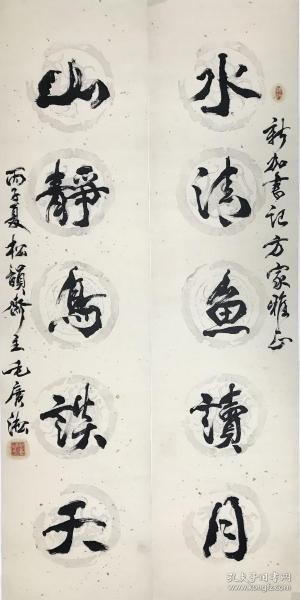 新加书记方家雅正
水清鱼讀月
山靜鳥談天
丙子夏松韻齋主毛广淞
孔夫子旧书网